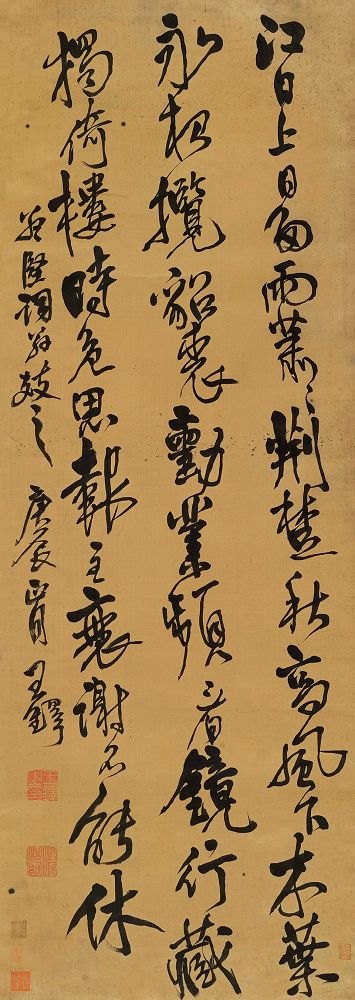 江日上日多雨蕭〻荊楚秋高風下木葉
永夜攬貂裘勳業頻看鏡行藏
獨倚樓時危思報主衰謝不能休
賢詞翁教之 庚辰 王鐸